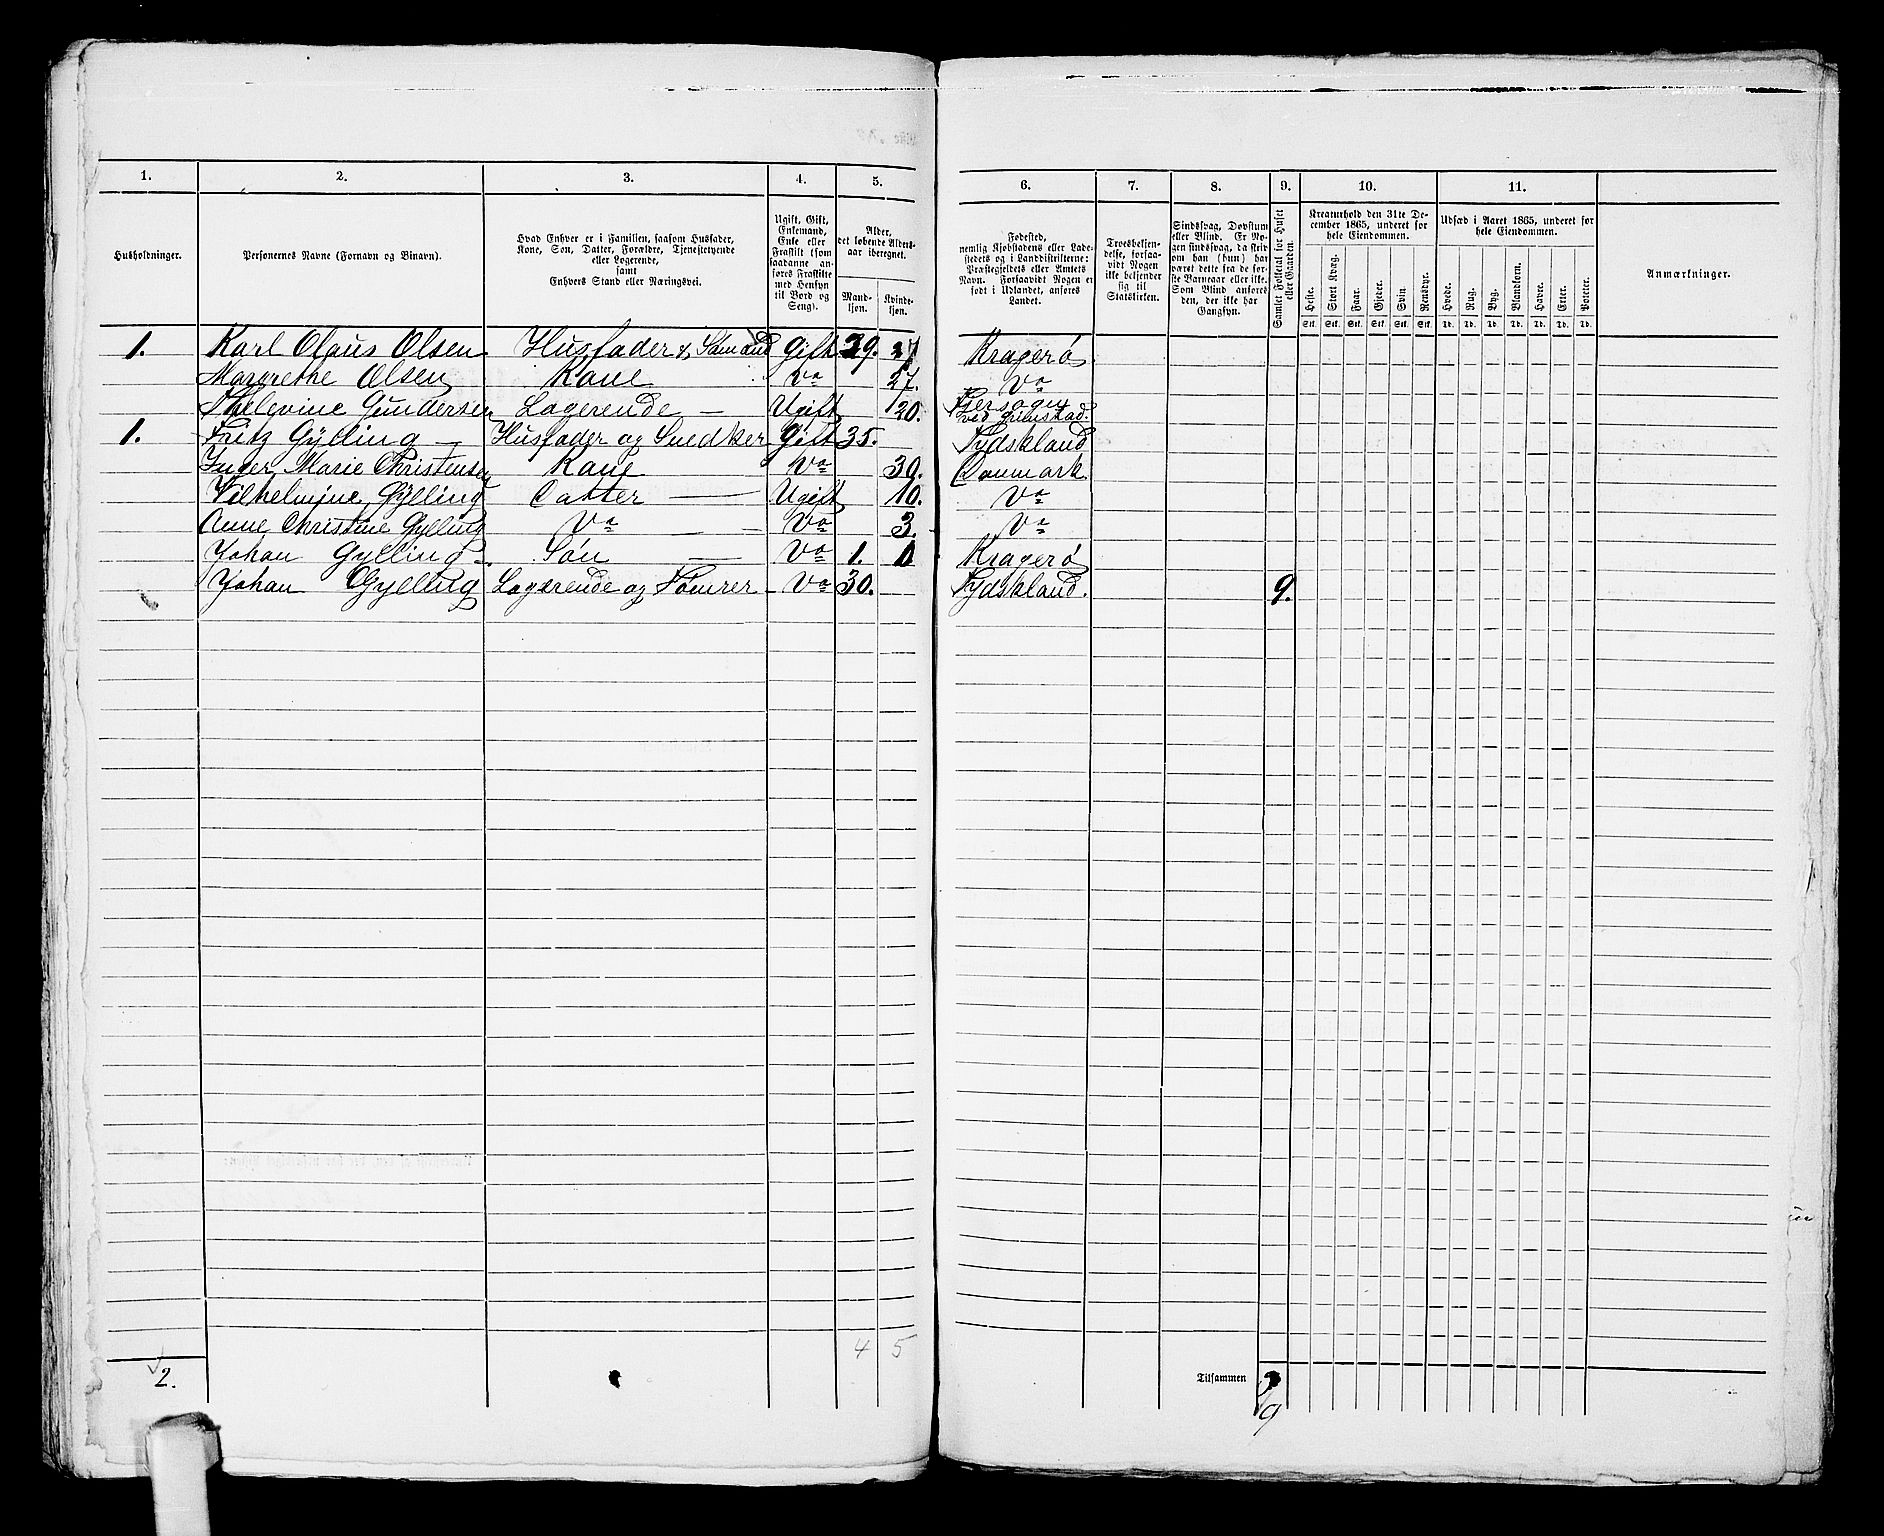 1. 2. 3. 4. 5. 6. 7. 8. 9. 10. 11.
Husholdninger.
Personernes Navne (Fornavn og Binavn).
Hvad Enhver er i Familien, saasom Husfader,
Kone, Søn, Datter, Forældre, Tjenestetyende
eller Logerende,
samt
Enhvers Stand eller Næringsvei.
Ugift, Gift,
Enkemand,
Enke eller
Fraskilt (som
saadanne an-
føres Fraskilte
med Hensyn
til Bord og
Seng).
Alder,
det løbende Alders-
aar iberegnet.
Mand-
kjøn.
Kvinde-
kjøn.
Fødested,
nemlig Kjøbstadens eller Lade-
stedets og i Landdistrikterne:
Præstegjeldets eller Amtets
Navn. Forsaavidt Nogen er
født i Udlandet, anføres
Landet.
Troesbekjen-
delse, forsaa-
vidt Nogen
ikke bekjender
sig til
Statskirken.
Sindssvag, Døvstum
eller Blind. Er No-
gen sindssvag, da skriv
om han (hun) har
været dette fra de før-
ste Barneaar eller ikke.
Som Blind anføres
den, der ikke har
Gangsyn.
Samlet Folketal for Huset
eller Gaarden.
Kreaturhold den 31te De-
cember 1865, underet for
hele Eiendommen.
Heste. Stort Kvæg. Faar. Gjeder. Svin. Rensdyr.
Stk. Stk. Stk. Stk. Stk. Stk.
Udsæd i Aaret 1865, underet for
hele Eiendommen.
Hvede. Rug. Byg. Blandkorn. Havre. Erter. Poteter.
Td. Td. Td. Td. Td. Td. Td.
Anmærkninger.
1. Karl Olaus Olsen Husfader & Sømand Gift 29. Kragerø
Margrethe Olsen Kone Do 27. Do
Thelevine Gundersen Logerende — Ugift 20. Fjersogn
ved Grimstad.
1. Fritz Gylling — Husfader og Snedker Gift 35. Tydskland
Inger Marie Christensen Kone Do 30. Danmark
Vilhelmine Gylling Datter — Ugift 10. Do
Anne Christine Gylling Do — Do 3. Do
Johan Gylling Søn — Do 1. Kragerø
Johan Gylling Logerende og Tømrer — Do 30. Tydskland. 9.
4 5
2.
Tilsammen
9